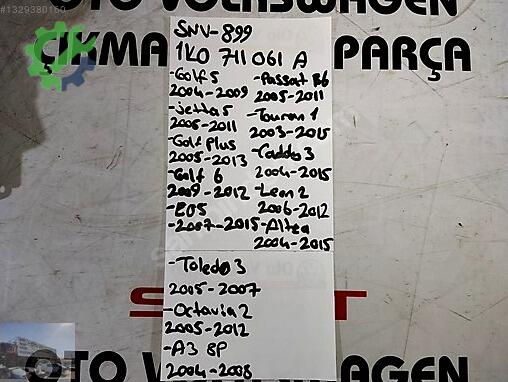 #1329380160
OTO VOLKSWAGEN
ÇIKMA PARÇA
SNV-899
1K0 711 061 A
-Golf 5
2004-2009
-Jetta 5
2006-2011
-Golf Plus
2005-2013
-Golf 6
2009-2012
-EOS
-2007-2015
-Passat B6
2005-2011
-Touran 1
2003-2015
-Caddo 3
2004-2015
-Leon 2
2006-2012
-Altea
2004-2015
-Toledo 3
2005-2007
-Octavia 2
2005-2012
-A3 8P
2004-2008